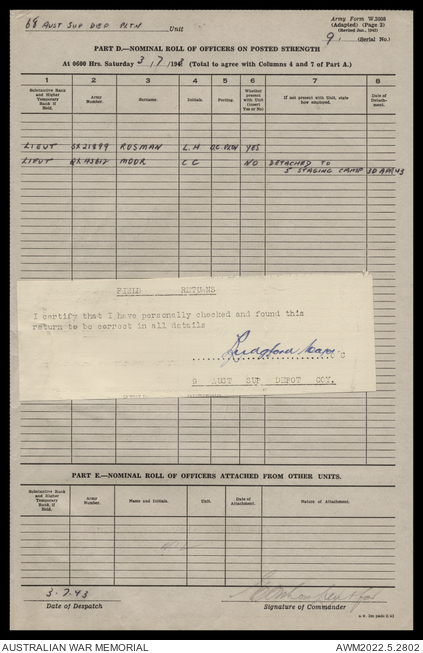 68 AUST SUP DEP PLTN Unit
Army Form W.3008
(Adapted) (Page 2)
(Revised Jan., 1943)
9 (Serial No.)
PART D.—NOMINAL ROLL OF OFFICERS ON POSTED STRENGTH
At 0600 Hrs. Saturday 3/7/1943 (Total to agree with Columns 4 and 7 of Part A.)
1 2 3 4 5 6 7 8
Substantive Rank and Higher Temporary Rank if Held. Army Number. Surname. Initials. Posting. Whether present with Unit (insert Yes or No) If not present with Unit, state how employed. Date of Detachment.
LIEUT SX21899 ROSMAN L.H OC PLTN YES
LIEUT CC NO DETACHED TO
5 STAGING CAMP 30 APR 43
FIELD RETURNS
I certify that I have personally checked and found this
return to be correct in all details
Capt. OC
9 AUST SUP DEPOT COY.
PART E.—NOMINAL ROLL OF OFFICERS ATTACHED FROM OTHER UNITS.
Substantive Rank and Higher Temporary Rank, if Held. Army Number. Name and Initials. Unit. Date of Attachment. Nature of Attachment.
3.7.43
Date of Despatch Signature of Commander
AUSTRALIAN WAR MEMORIAL AWM2022.5.2802